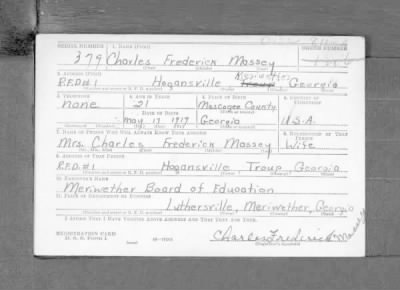 SERIAL NUMBER 1. NAME (Print) ORDER NUMBER
379 Charles Frederick Massey
(First) (Middle) (Last)
2. ADDRESS (Print)
Meriwether
R.F.D. # 1 Hogansville Troup Georgia
3. TELEPHONE 4. AGE IN YEARS 5. PLACE OF BIRTH 6. COUNTRY OF CITIZENSHIP
none 21 Muscogee County
DATE OF BIRTH
May 17 1919 Georgia U.S.A.
7. NAME OF PERSON WHO WILL ALWAYS KNOW YOUR ADDRESS 8. RELATIONSHIP OF THAT PERSON
Mrs. Charles Frederick Massey Wife
9. ADDRESS OF THAT PERSON
R.F.D. #1 Hogansville Troup Georgia
10. EMPLOYER'S NAME
Meriwether Board of Education
11. PLACE OF EMPLOYMENT OR BUSINESS
Luthersville, Meriwether, Georgia
I AFFIRM THAT I HAVE VERIFIED ABOVE ANSWERS AND THAT THEY ARE TRUE.
REGISTRATION CARD
D. S. S. FORM 1
Charles Frederick Massey
(Registrant's signature)